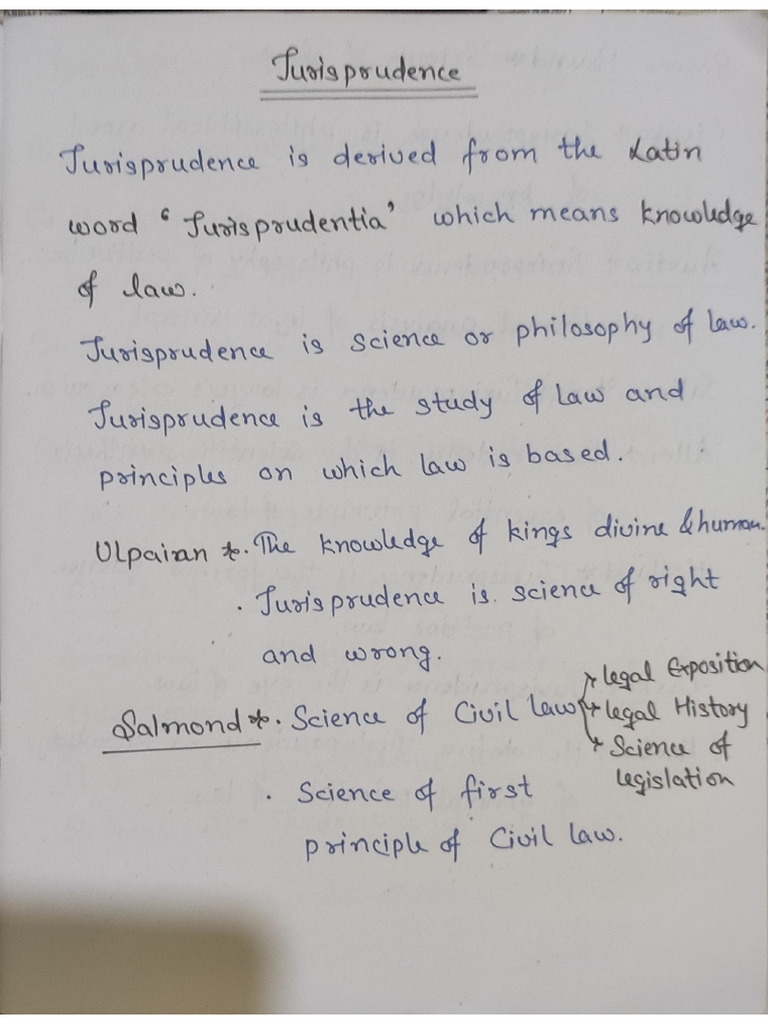 Jurisprudence
Jurisprudence is derived from the Latin
word ‘Jurisprudentia’ which means knowledge
of law.
Jurisprudence is science or philosophy of law.
Jurisprudence is the study of law and
principles on which law is based.
Ulpairan *. The knowledge of kings divine & human.
. Jurisprudence is science of right
and wrong.
Salmond *. Science of Civil law
→ legal Exposition
→ legal History
→ Science of
legislation
. Science of first
principle of Civil law.